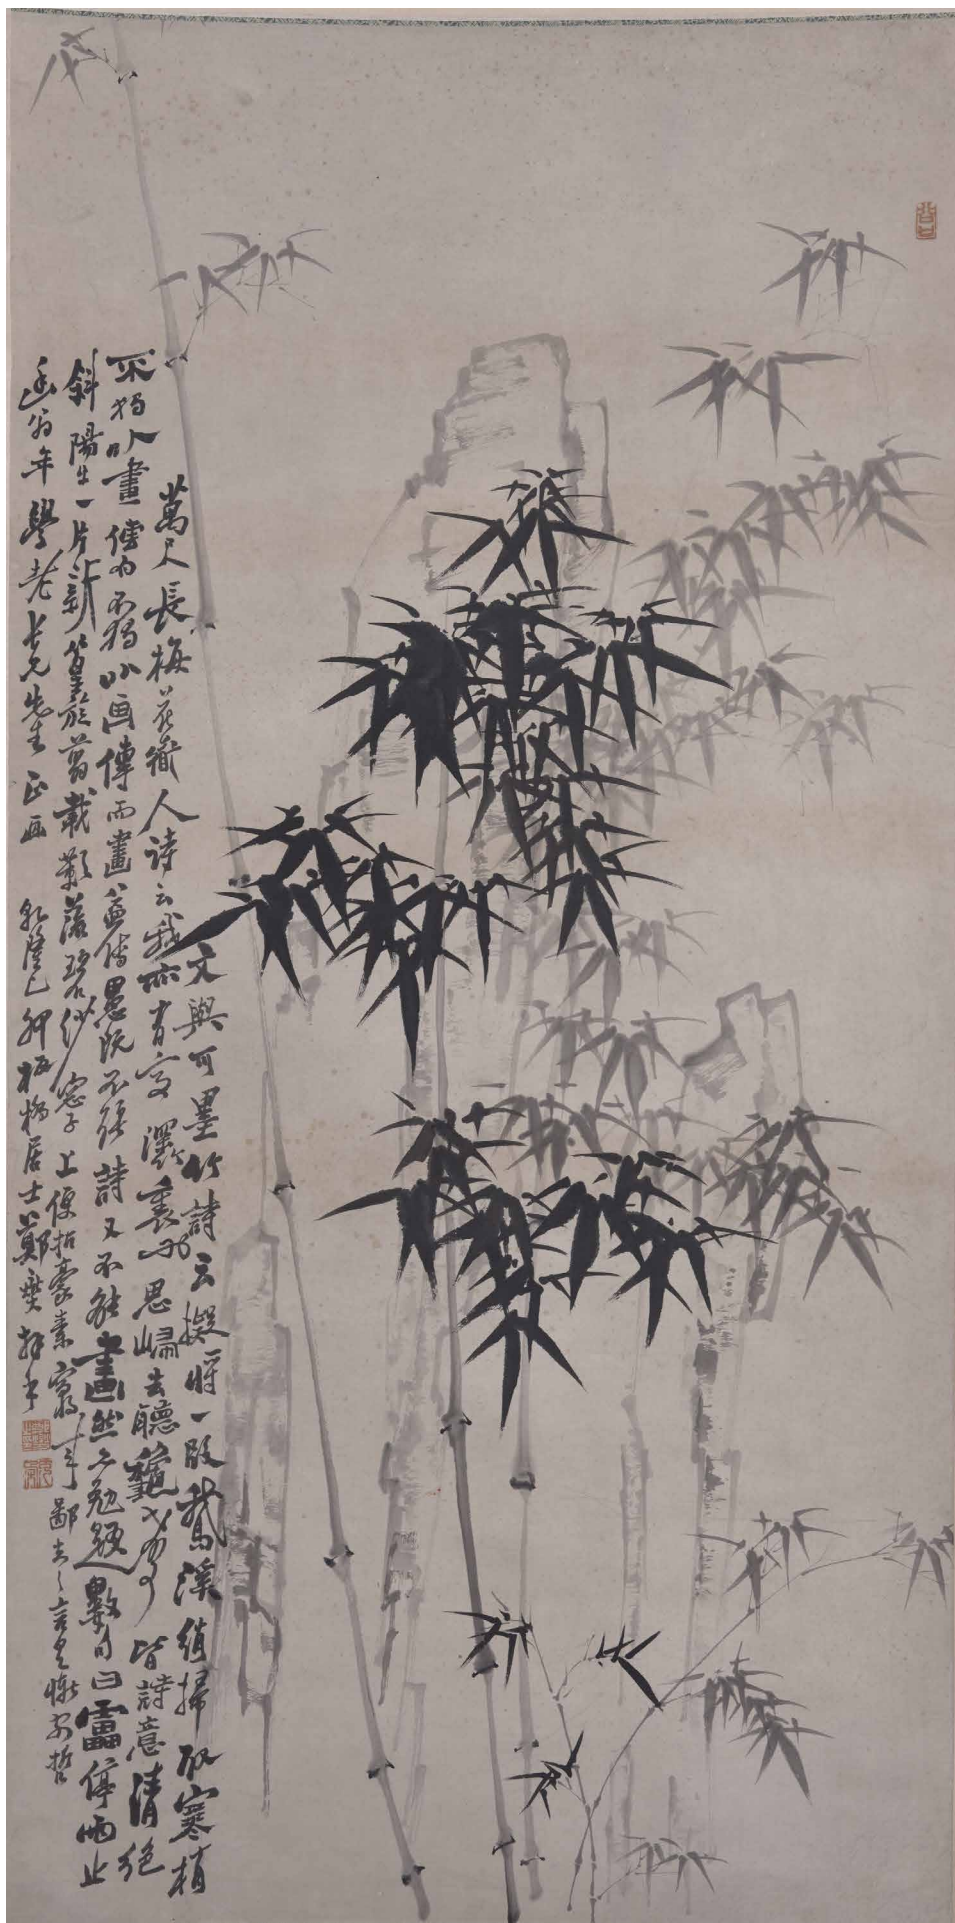 文與可墨竹詩云擬將一段鵞溪絹掃取寒梢
萬尺長梅花道人詩云我亦有亭深竹裏也思歸去聽秋聲皆詩意清絕
不獨以畫傳也不獨以画傳而畫益傳愚既不能詩又不能畫然亦勉題數句曰雷停雨止
斜陽出一片新篁旋剪裁影落碧紗窓子上便拈豪素寫來鄙夫之言有慚前哲
遂翁年學老長兄先生正画 乾隆己卯板橋居士鄭燮拜手